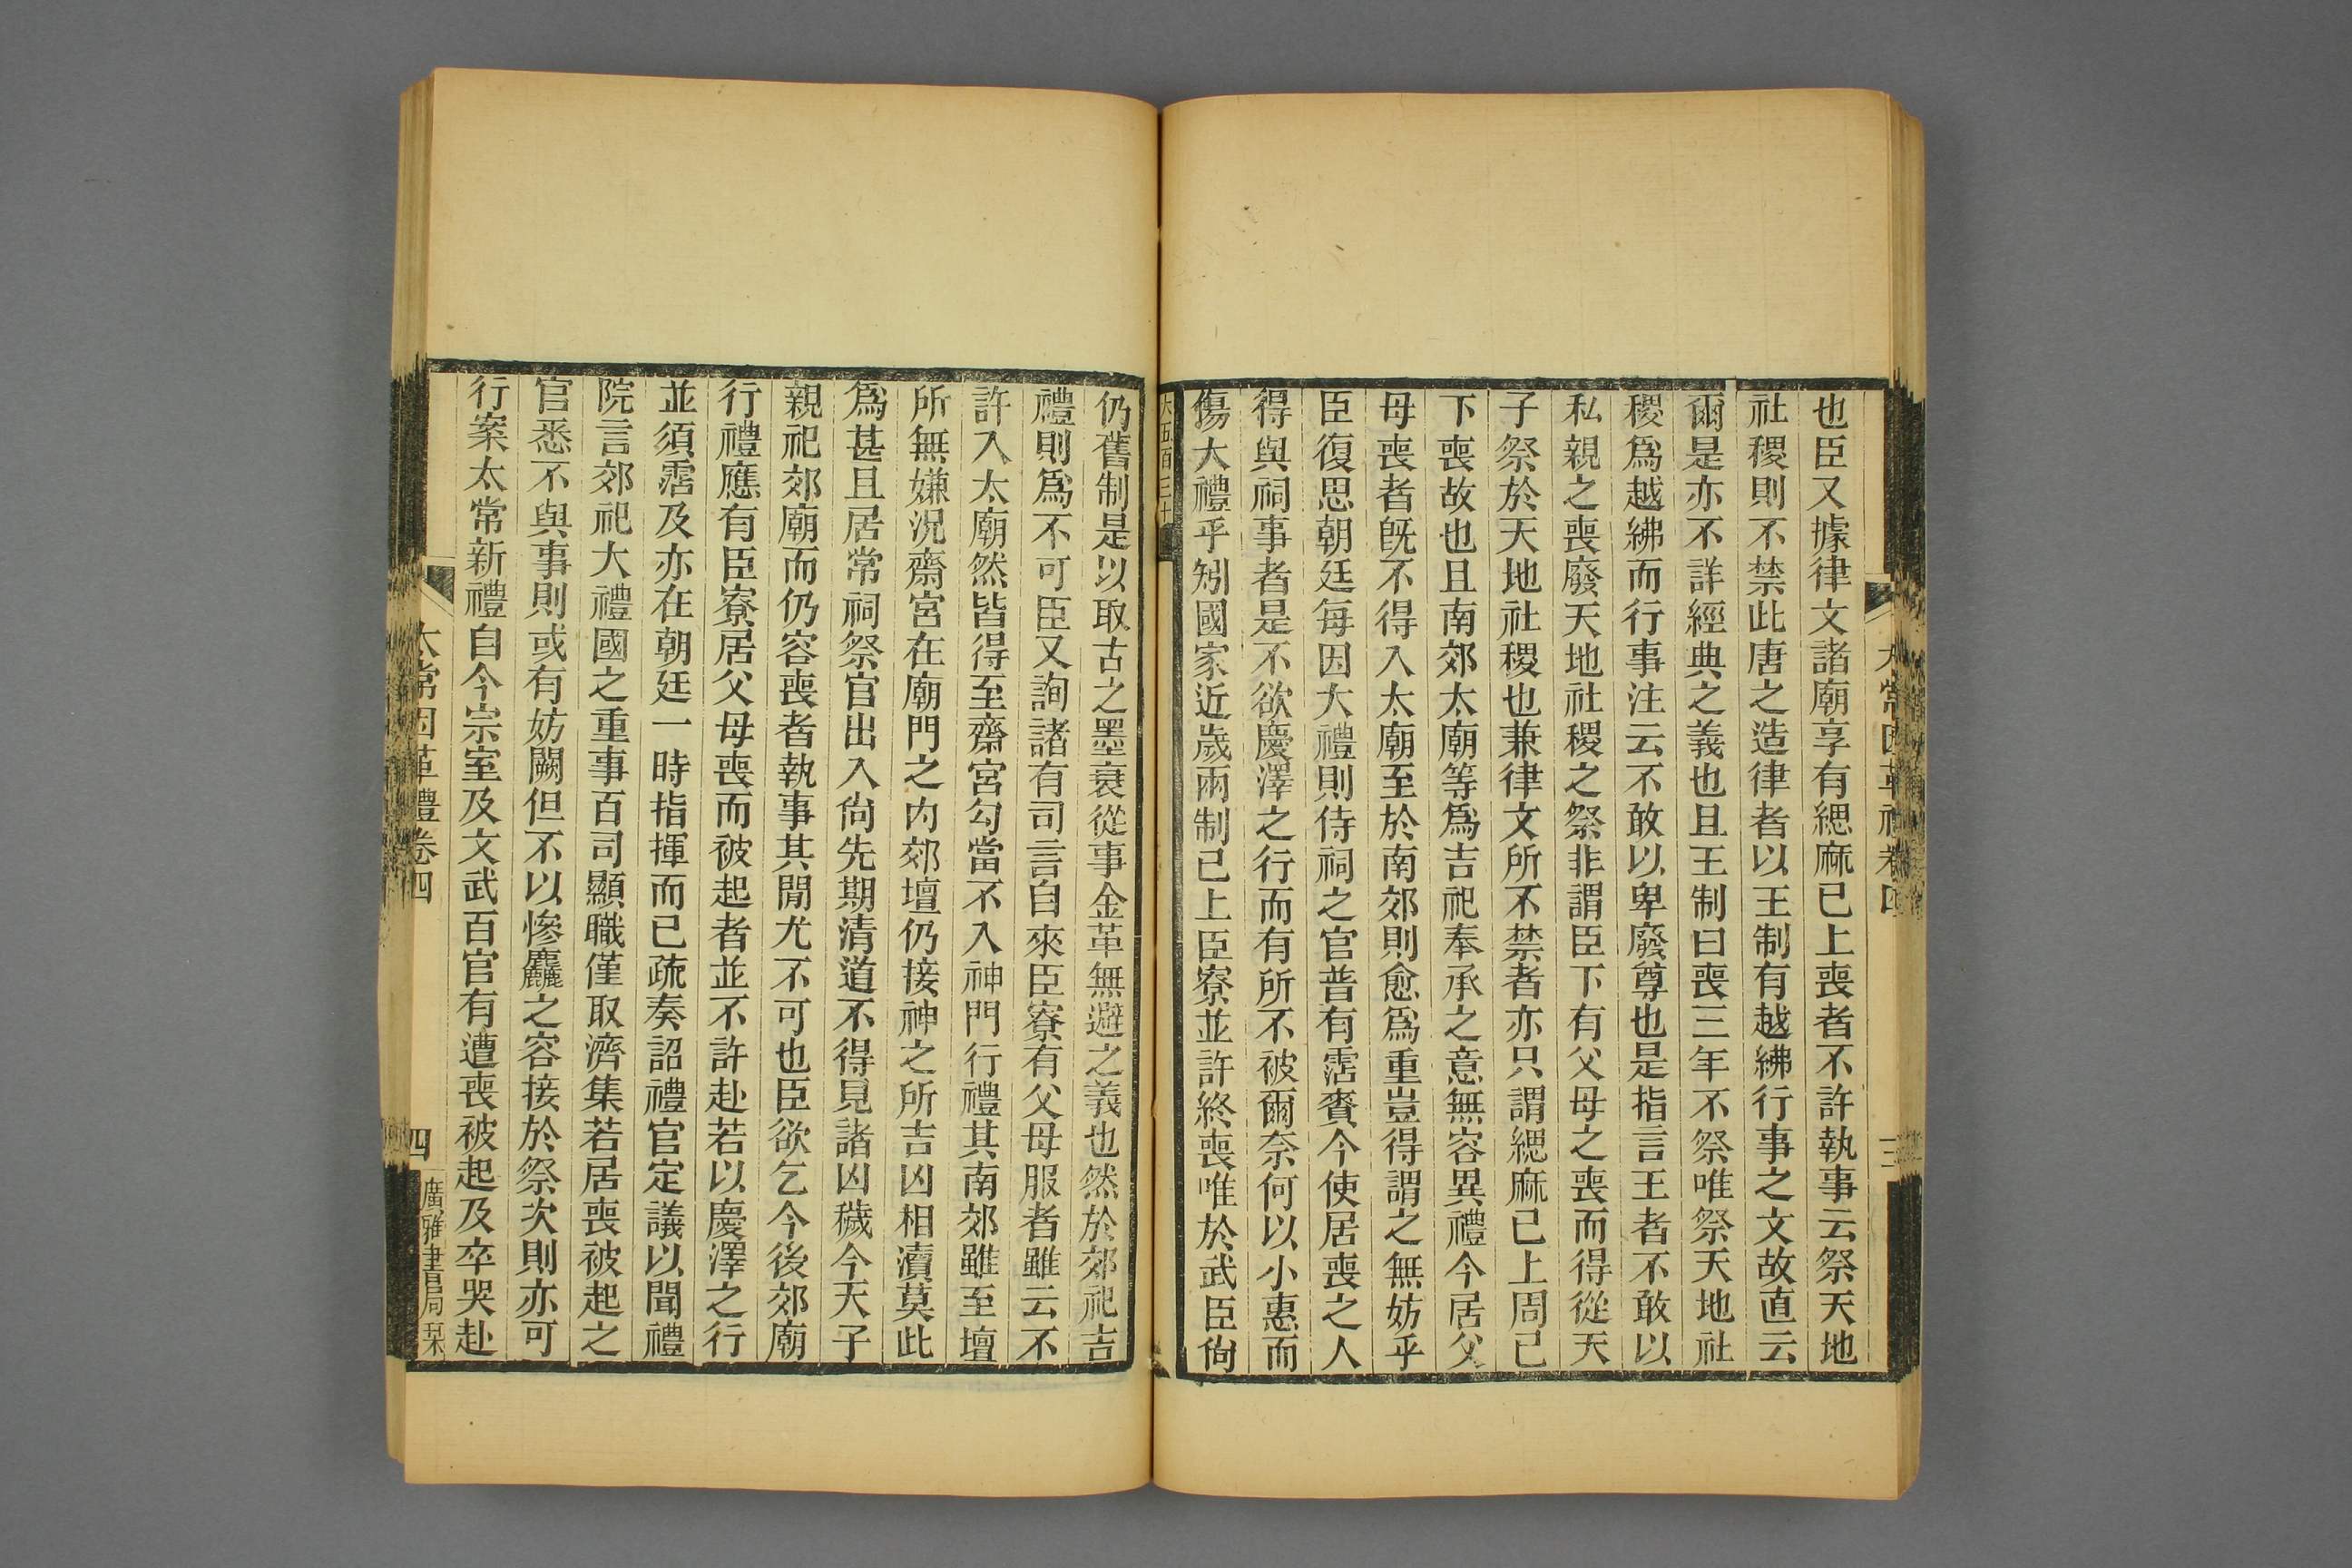 也臣又據律文諸廟享有緦麻已上喪者不許執事云祭天地
社稷則不禁此唐之造律者以王制有越紼行事之文故直云
爾是亦不詳經典之義也且王制曰喪三年不祭唯祭天地社
稷爲越紼而行事注云不敢以卑廢尊也是指言王者不敢以
私親之喪廢天地社稷之祭非謂臣下有父母之喪而得從天
子祭於天地社稷也兼律文所不禁者亦只謂緦麻已上周已
下喪故也且南郊太廟等爲吉祀奉承之意無容異禮今居父
母喪者旣不得入太廟至於南郊則愈爲重豈得謂之無妨乎
臣復思朝廷每因大禮則侍祠之官普有霑賚今使居喪之人
得與祠事者是不欲慶澤之行而有所不被爾奈何以小惠而
傷大禮乎矧國家近歲兩制已上臣寮並許終喪唯於武臣尙
大五百三十
仍舊制是以取古之墨衰從事金革無避之義也然於郊祀吉
禮則爲不可臣又詢諸有司言自來臣寮有父母服者雖云不
許入太廟然皆得至齋宮勾當不入神門行禮其南郊雖至壇
所無嫌況齋宮在廟門之內郊壇仍接神之所吉凶相瀆莫此
爲甚且居常祠祭官出入尙先期清道不得見諸凶穢今天子
親祀郊廟而仍容喪者執事其閒尤不可也臣欲乞今後郊廟
行禮應有臣寮居父母喪而被起者並不許赴若以慶澤之行
並須霑及亦在朝廷一時指揮而已疏奏詔禮官定議以聞禮
院言郊祀大禮國之重事百司顯職僅取濟集若居喪被起之
官悉不與事則或有妨闕但不以慘麤之容接於祭次則亦可
行案太常新禮自今宗室及文武百官有遭喪被起及卒哭赴
太常因革禮卷四
四
廣雅書局栞